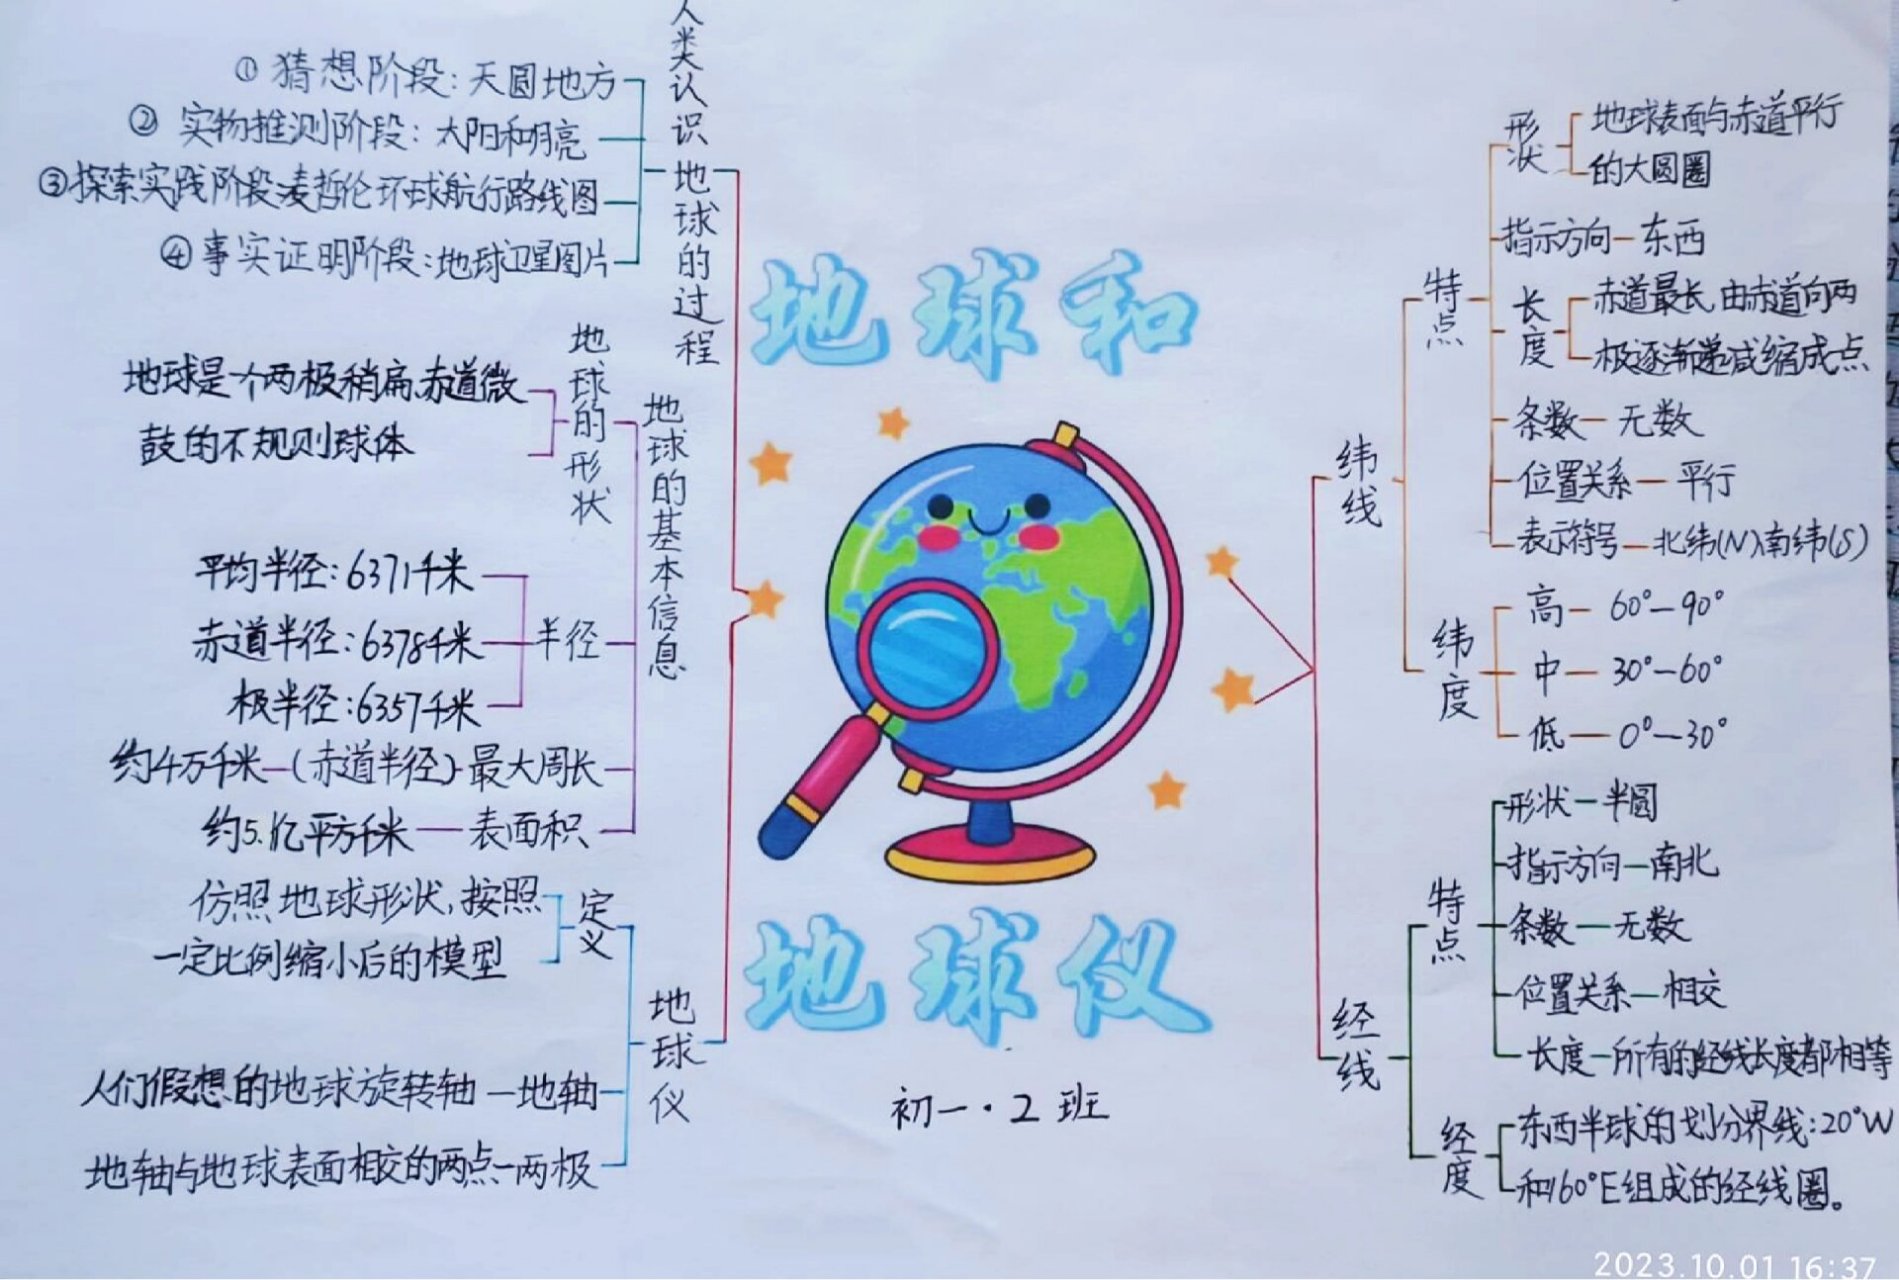 人类认识地球的过程
① 猜想阶段：天圆地方
② 实物推测阶段：太阳和月亮
③探索实践阶段麦哲伦环球航行路线图
④事实证明阶段：地球卫星图片
地球的基本信息
地球的形状
地球是一个两极稍扁，赤道微
鼓的不规则球体
半径
平均半径：6371千米
赤道半径：6378千米
极半径：6357千米
约4万千米—（赤道半径）—最大周长
约5.1亿平方千米—表面积
地球仪
定义
仿照地球形状，按照
一定比例缩小后的模型
人们假想的地球旋转轴—地轴
地轴与地球表面相交的两点—两极
地球和
地球仪
初一·2班
纬线
特点
形状
地球表面与赤道平行
的大圆圈
指示方向—东西
长度
赤道最长，由赤道向两
极逐渐递减缩成点
条数—无数
位置关系—平行
表示符号—北纬(N)、南纬(S)
纬度
高—60°—90°
中—30°—60°
低—0°—30°
经线
特点
形状—半圆
指示方向—南北
条数—无数
位置关系—相交
长度—所有的经线长度都相等
经度
东西半球的划分界线：20°W
和160°E组成的经线圈。
2023.10.01 16:37